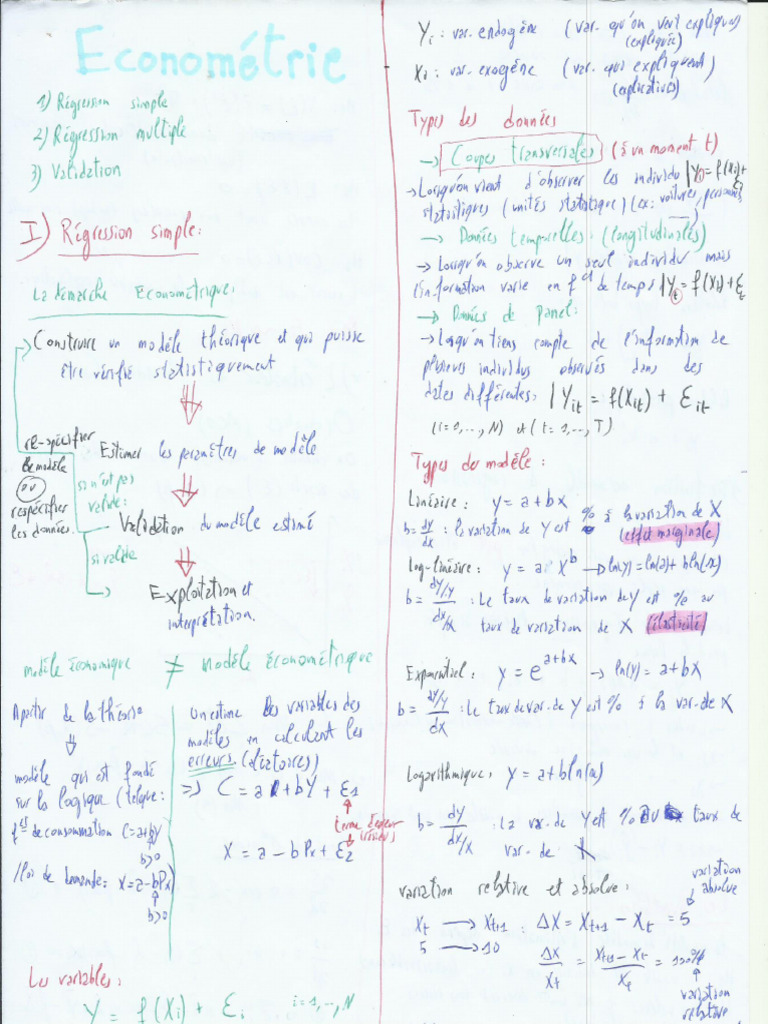 Econométrie
1) Régression simple
2) Régression multiple
3) Validation
I) Régression simple:
La démarche Econometrique:
Construire un modèle théorique et qui puisse
être vérifié statistiquement
Estimer les paramètres de modèle
re-spécifier
le modèle
ou
respécifier
les données.
si n'est pas
valide:
Validation du modèle estimé
si valide
Exploitation et
interprétation.
modèle économique ≠ modèle économétrique
Apartir de la théorie
modèle qui est fondé
sur la logique (telque:
f° de consommation C=a+bY
b>0
/loi de demande: X=a-bPx)
b>0
On estime les variables des
modèles en calculant les
erreurs (aléatoires)
=> C = a + bY + ε1
terme d'erreur
X = a - bPx + ε2
Les variables:
Y = f(Xi) + εi i=1,..,N
Yi : var. endogène (var. qu'on veut expliquer)
(expliquée)
Xi : var. exogène (var. qui expliquent)
(explicatives)
Types des données
→ Coupes transversales (à un moment t)
→ Lorsqu'on vient d'observer les individu |Yi = f(Xi)+εi
statistiques (unités statistique) (ex: voitures, personnes,
→ Données temporelles: (longitudinales)
→ Lorsqu'on observe un seul individu mais
l'information varie en f° de temps |Yt = f(Xt) + εt
→ Données de panel:
→ Lorsqu'on tiens compte de l'information de
plusieurs individus observés dans des
dates différentes: |Yit = f(Xit) + εit
(i=1,..., N) et (t=1,..., T)
Types de modèle:
Linéaire: y = a+bx
b = dy/dx : la variation de Y est % à la variation de X
(effet marginale)
Log-linéaire: y = a X^b → ln(y)=ln(a)+bln(x)
b = (dy/y)/(dx/x) : Le taux de variation de y est % au
taux de variation de X (élasticité)
Exponentiel: y = e^(a+bx) → ln(y) = a+bx
b = (dy/y)/dx : Le taux de var. de Y est % à la var. de X
Logarithmique: y = a+bln(x)
b = dy/(dx/x) : La var. de Y est % au taux de
var. de X
variation relative et absolue:
variation
absolue
Xt → Xt+1 : ΔX = Xt+1 - Xt = 5
5 → 10
ΔX/Xt = (Xt+1 - Xt)/Xt = 100%
variation
relative